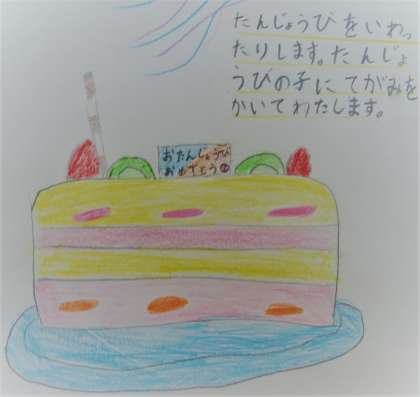 たんじょうびをいわっ
たりします。たんじょ
うびの子にてがみを
かいてわたします。
おたんじょうび
おめでとう